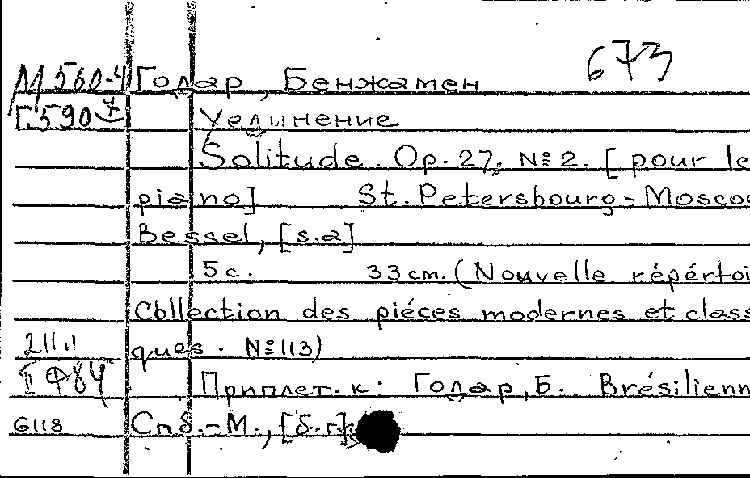 673
М 560-4 Годар, Бенжамен
Г.590 Уединение
Solitude. Op. 27, №2. [pour le
piano] St. Petersbourg-Moscou
Bessel, [s.a]
5c. 33cm. (Nouvelle répértoi
Collection des piéces modernes et class
ques. №113)
Приплет. к: Годар, Б. Brésilienn
6118 Спб.-М., [б.г.]